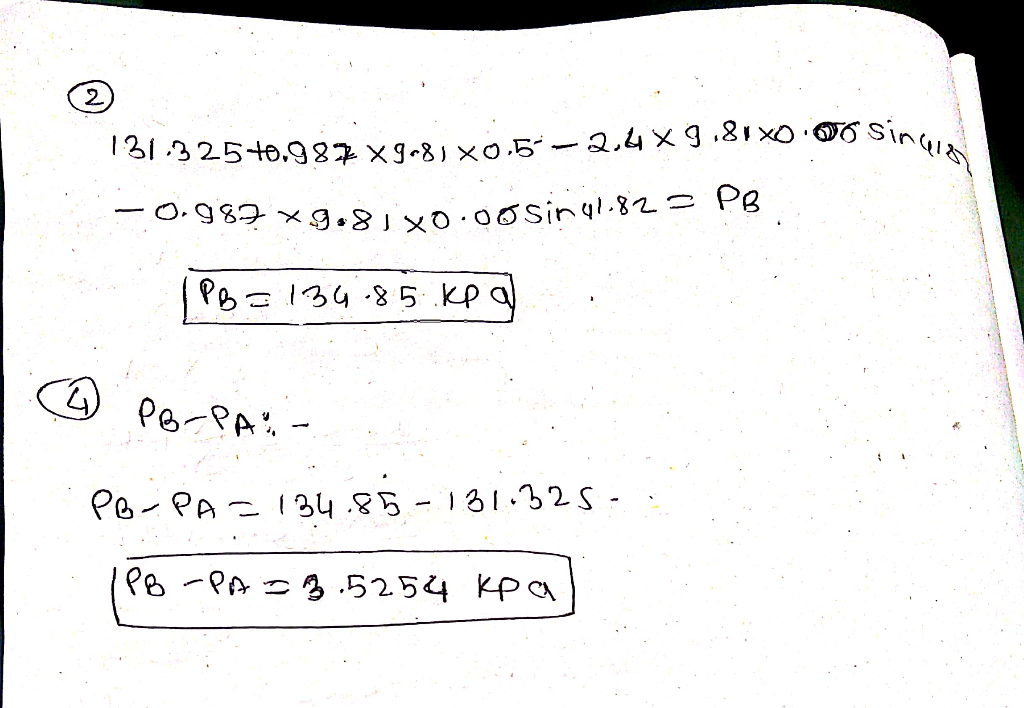 ②
131.325+0.987 x9.81x0.5 - 2.4x9.81x0.06 sin41.82
- 0.987 x 9.81x0.06sin41.82 = PB
PB = 134.85 kpa
④ PB-PA:-
PB-PA = 134.85 - 131.325
PB-PA = 3.5254 kpa